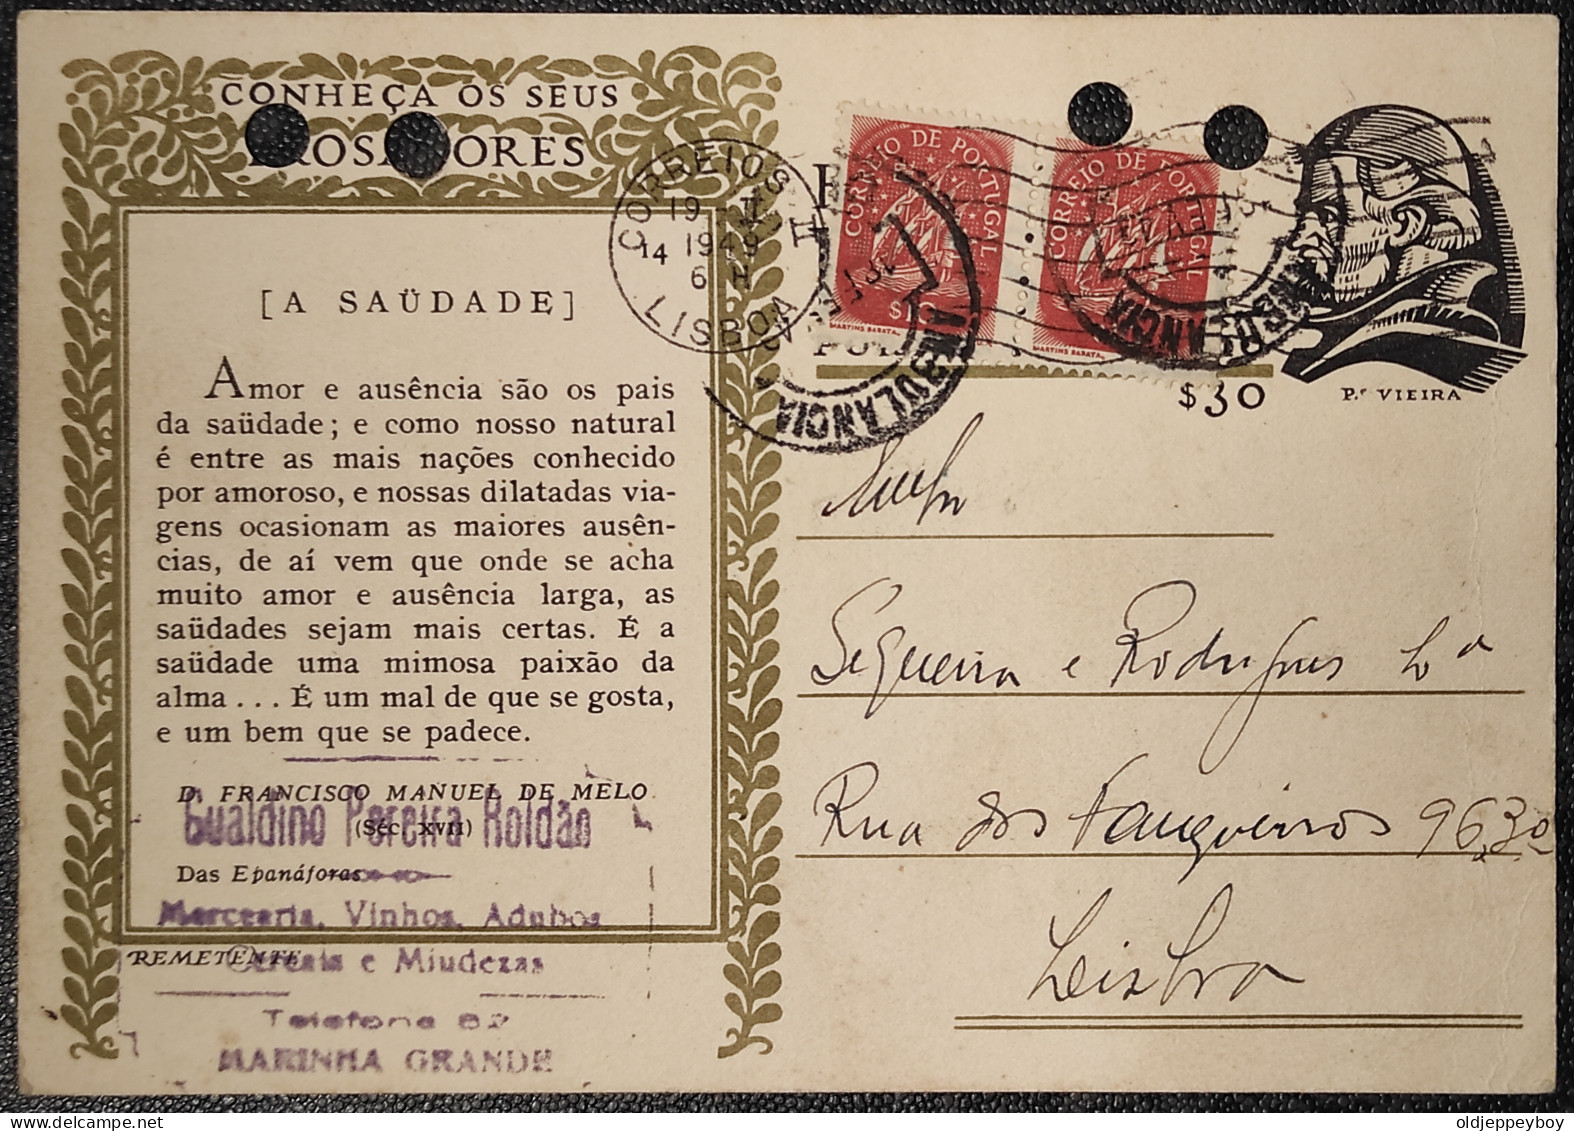 CONHEÇA OS SEUS
PROSADORES
[A SAÜDADE]
Amor e ausência são os pais
da saüdade; e como nosso natural
é entre as mais nações conhecido
por amoroso, e nossas dilatadas via-
gens ocasionam as maiores ausên-
cias, de aí vem que onde se acha
muito amor e ausência larga, as
saüdades sejam mais certas. É a
saüdade uma mimosa paixão da
alma... É um mal de que se gosta,
e um bem que se padece.
D. FRANCISCO MANUEL DE MELO
(Séc. XVII)
Das Epanáforas
REMETENTE
Gualdino Pereira Roldão
Mercearia, Vinhos, Adubos
Cereais e Miudezas
Telefone 82
MARINHA GRANDE
CORREIOS
19
1949
14
6 H
LISBOA
II
CORREIO DE PORTUGAL
$10
MARTINS BARATA
CORREIO DE PORTUGAL
MARTINS BARATA
AMBULANCIA
AMBULANCIA
$30
P.e VIEIRA
Siqueira e Rodrigues Lda
Rua dos Fanqueiros 96, 3º
Lisboa
oldjeppeyboy